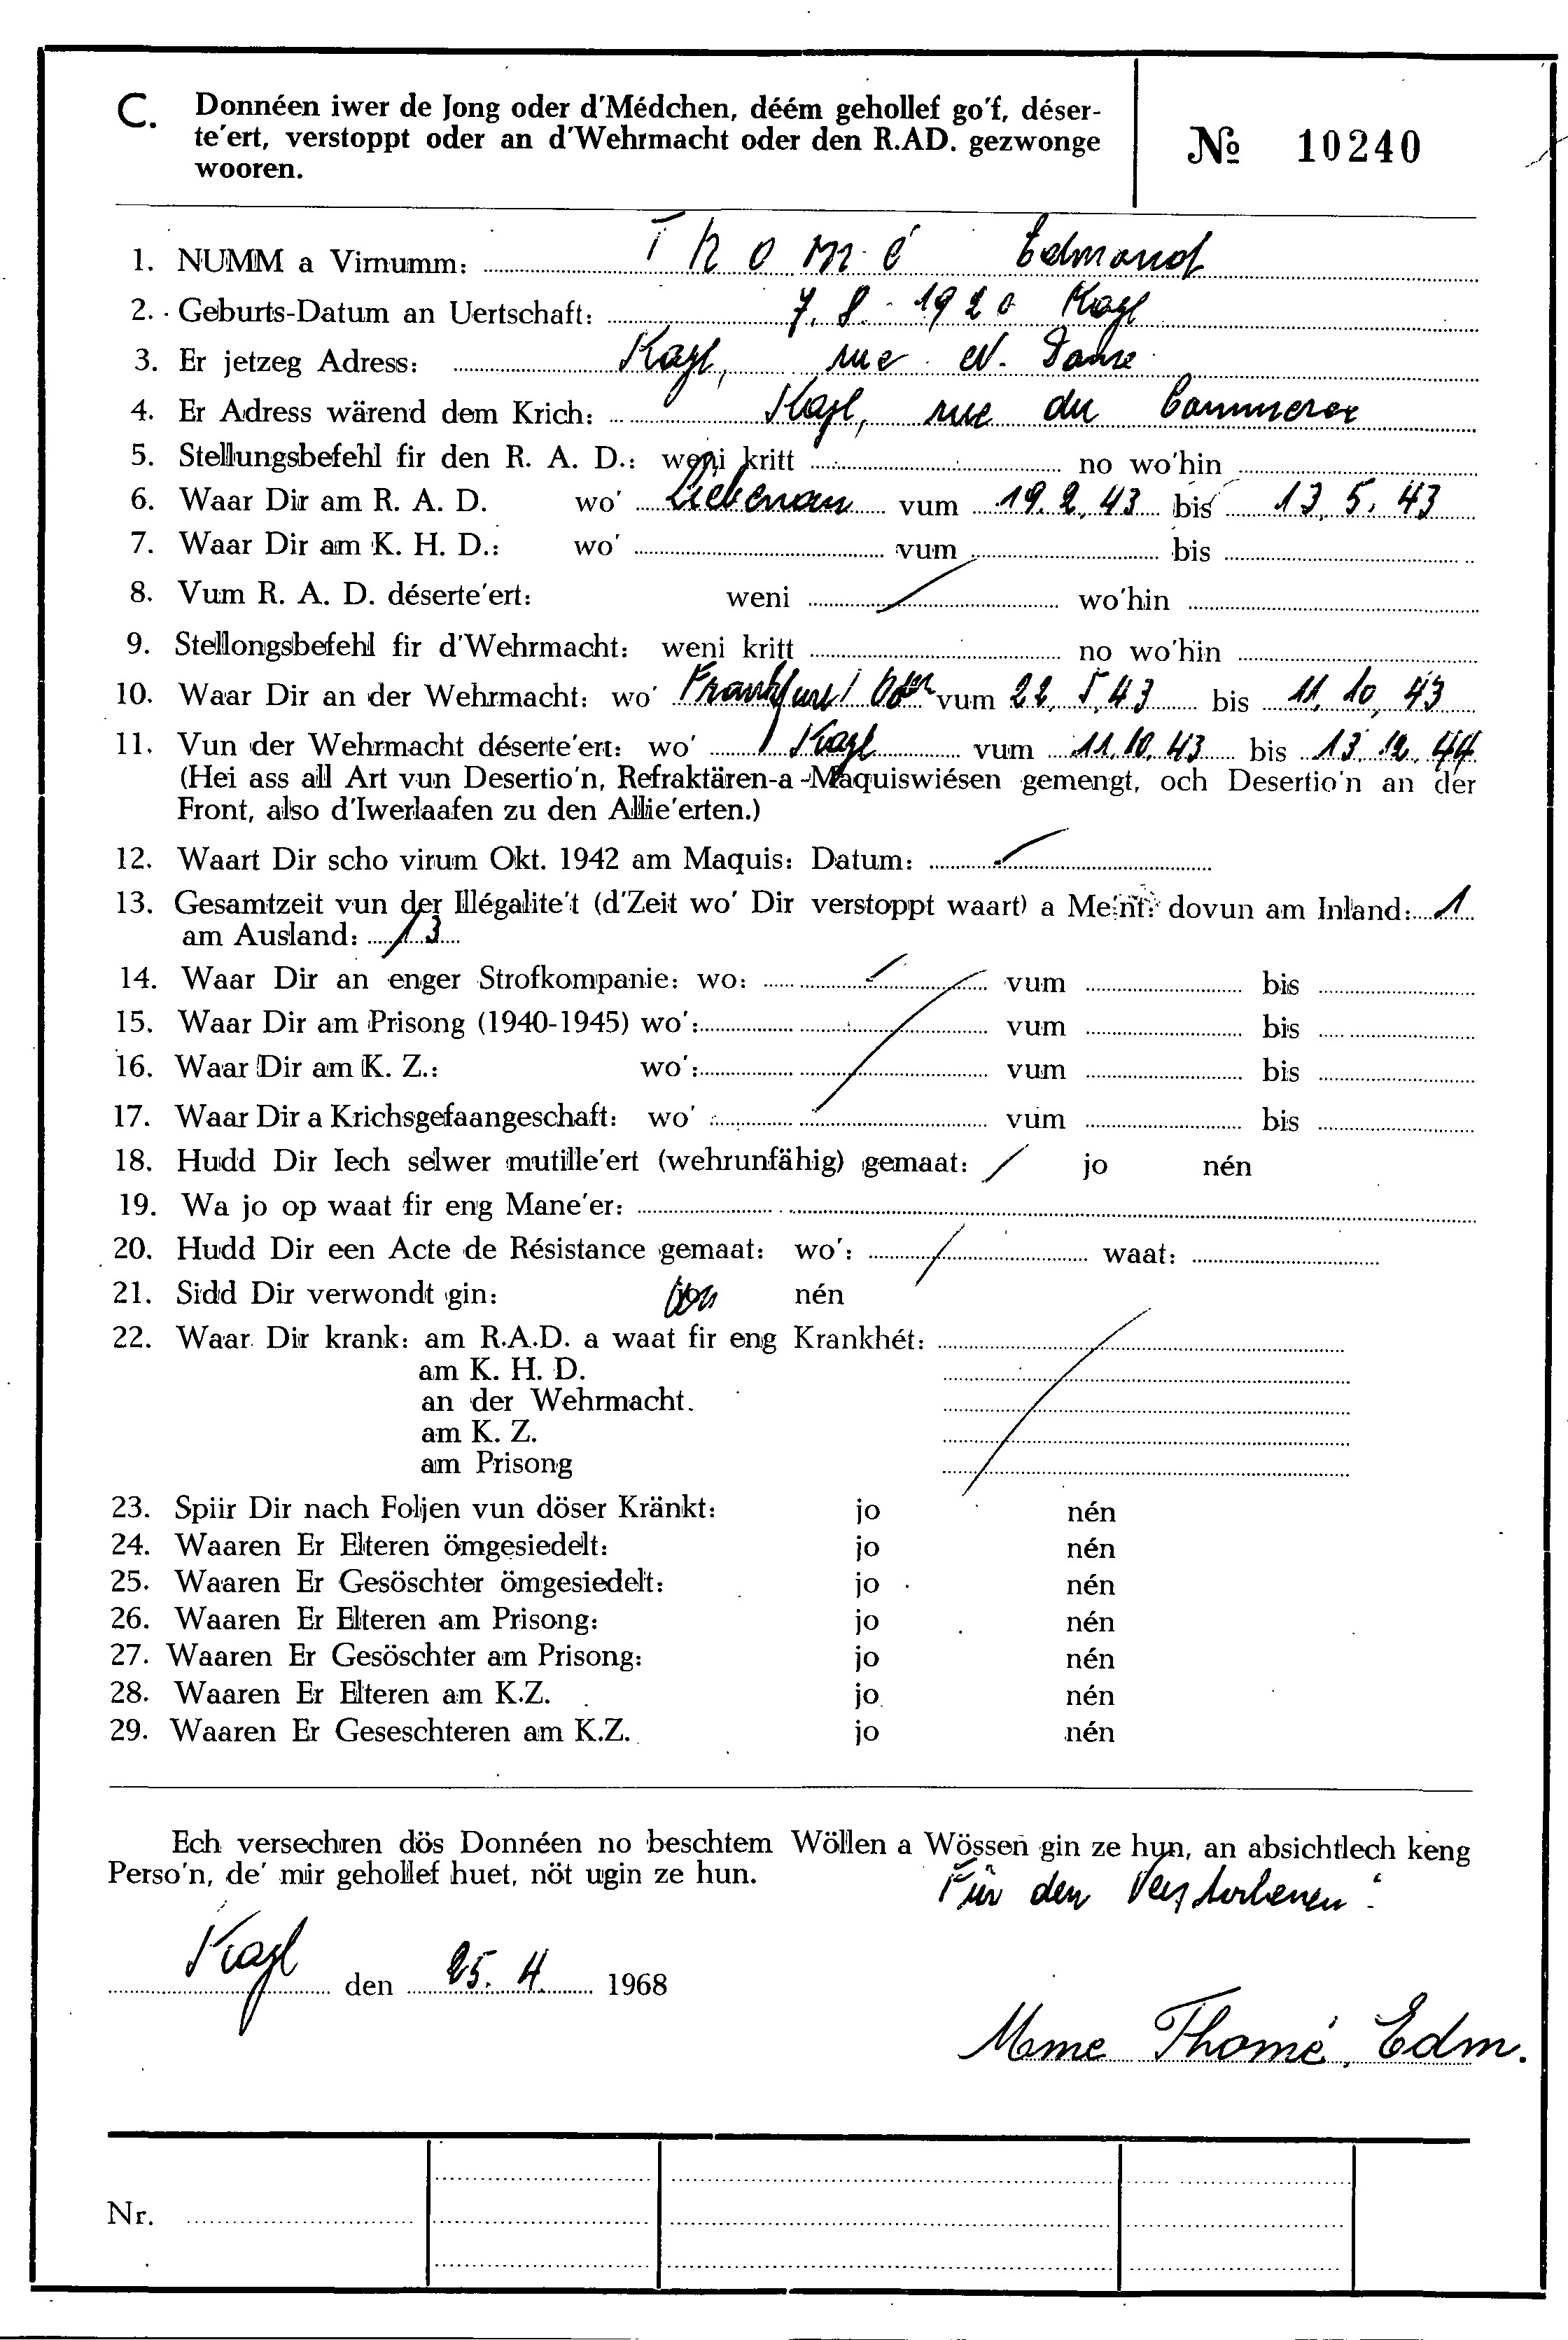 C. Donnéen iwer de Jong oder d'Médchen, déém gehollef go'f, déser-
te'ert, verstoppt oder an d'Wehrmacht oder den R.AD. gezwonge
wooren.
№ 10240
1. NUMM a Virnumm: Thomé Edmond
2. Geburts-Datum an Uertschaft: 7. 8. 1920 Kayl
3. Er jetzeg Adress: Kayl, rue N.
4. Er Adress wärend dem Krich: Kayl, rue du Commerce
5. Stellungsbefehl fir den R. A. D.: weni kritt no wo'hin
6. Waar Dir am R. A. D. wo' Liebenau vum 19. 2. 43 bis 13. 5. 43
7. Waar Dir am K. H. D.: wo' vum bis
8. Vum R. A. D. déserte'ert: weni wo'hin
9. Stellongsbefehl fir d'Wehrmacht: weni kritt no wo'hin
10. Waar Dir an der Wehrmacht: wo' Frankfurt/Oder vum 22. 5. 43 bis 11. 10. 43
11. Vun der Wehrmacht déserte'ert: wo' Kayl vum 11. 10. 43 bis 13. 12. 44
(Hei ass all Art vun Desertio'n, Refraktären-a -Maquiswiésen gemengt, och Desertio'n an der
Front, also d'Iwerlaafen zu den Allie'erten.)
12. Waart Dir scho virum Okt. 1942 am Maquis: Datum:
13. Gesamtzeit vun der Illégalite't (d'Zeit wo' Dir verstoppt waart) a Me'nt: dovun am Inland: 1
am Ausland: 13
14. Waar Dir an enger Strofkompanie: wo: vum bis
15. Waar Dir am Prisong (1940-1945) wo': vum bis
16. Waar Dir am K. Z.: wo': vum bis
17. Waar Dir a Krichsgefaangeschaft: wo' vum bis
18. Hudd Dir Iech selwer mutille'ert (wehrunfähig) gemaat: jo nén
19. Wa jo op waat fir eng Mane'er:
20. Hudd Dir een Acte de Résistance gemaat: wo': waat:
21. Sidd Dir verwondt gin: nén
22. Waar Dir krank: am R.A.D. a waat fir eng Krankhét:
am K. H. D.
an der Wehrmacht.
am K. Z.
am Prisong
23. Spiir Dir nach Foljen vun döser Kränkt: jo nén
24. Waaren Er Elteren ömgesiedelt: jo nén
25. Waaren Er Gesöschter ömgesiedelt: jo nén
26. Waaren Er Elteren am Prisong: jo nén
27. Waaren Er Gesöschter am Prisong: jo nén
28. Waaren Er Elteren am K.Z. jo nén
29. Waaren Er Geseschteren am K.Z. jo nén
Ech versechren dös Donnéen no beschtem Wöllen a Wössen gin ze hun, an absichtlech keng
Perso'n, de' mir gehollef huet, nöt ugin ze hun.
Für den Verstorbenen:
Kayl den 25. 4. 1968
Mme Thomé, Edm.
Nr.